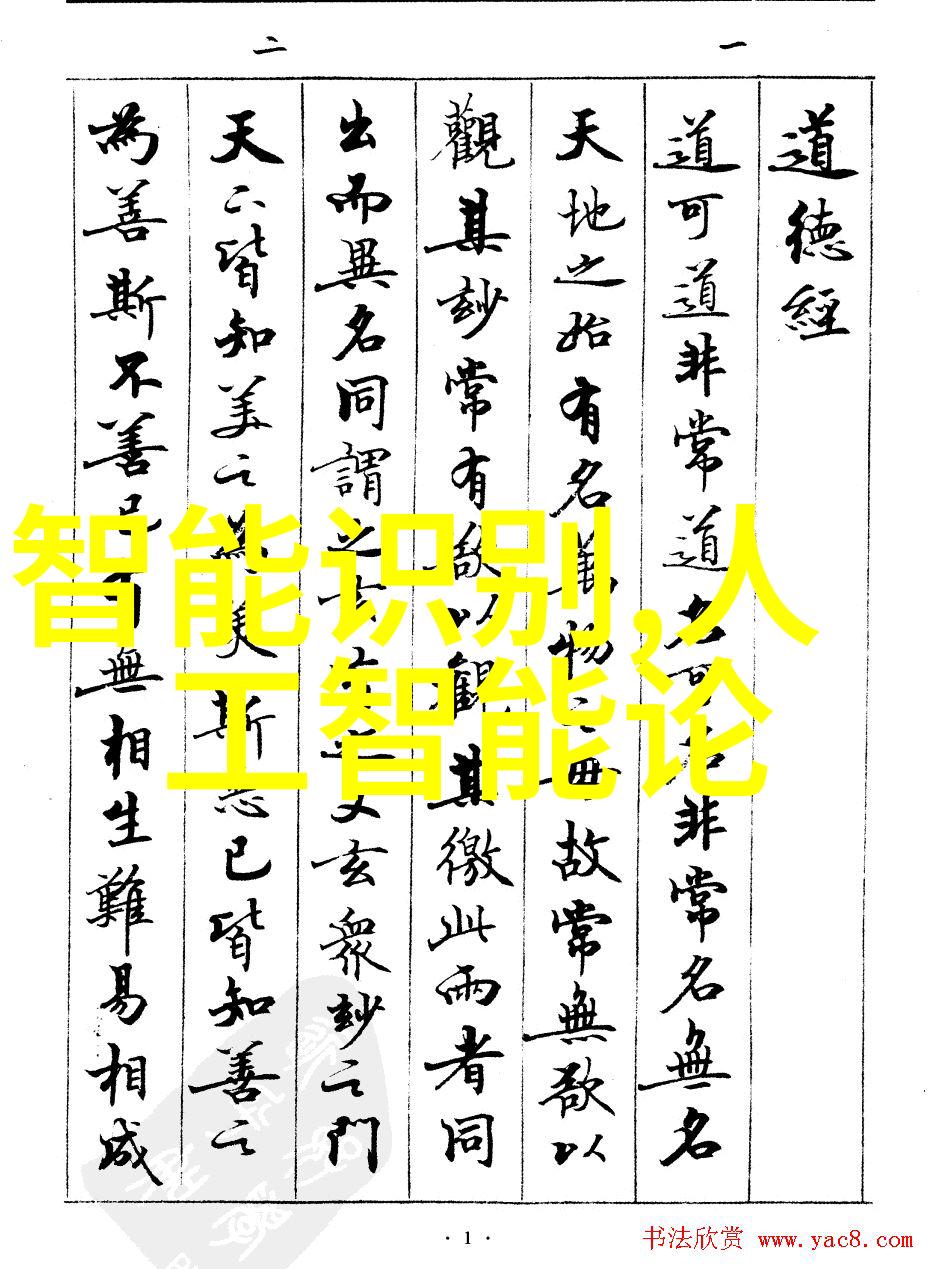 一
二
道德經
道可道非常道名可名非常名無名
天地之始有名萬物之母故常無欲以
觀其玅常有欲以觀其徼此兩者同
出而異名同謂之玄玄之又玄衆玅之門
天下皆知美之為美斯惡已皆知善之
為善斯不善已有無相生難易相成
智能识别,人
工智能论
· 1 ·
书法欣赏 www.yac8.com